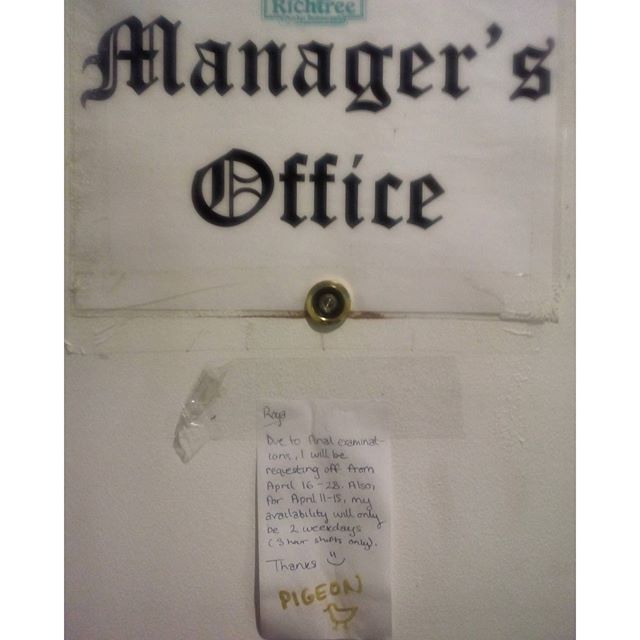 Richtree
Manager's
Office
Roya
Due to final examinat-
ions, I will be
requesting off from
April 16-28. Also,
for April 11-15, my
availability will only
be 2 weekdays
(3 hour shifts only).
Thanks
PIGEON